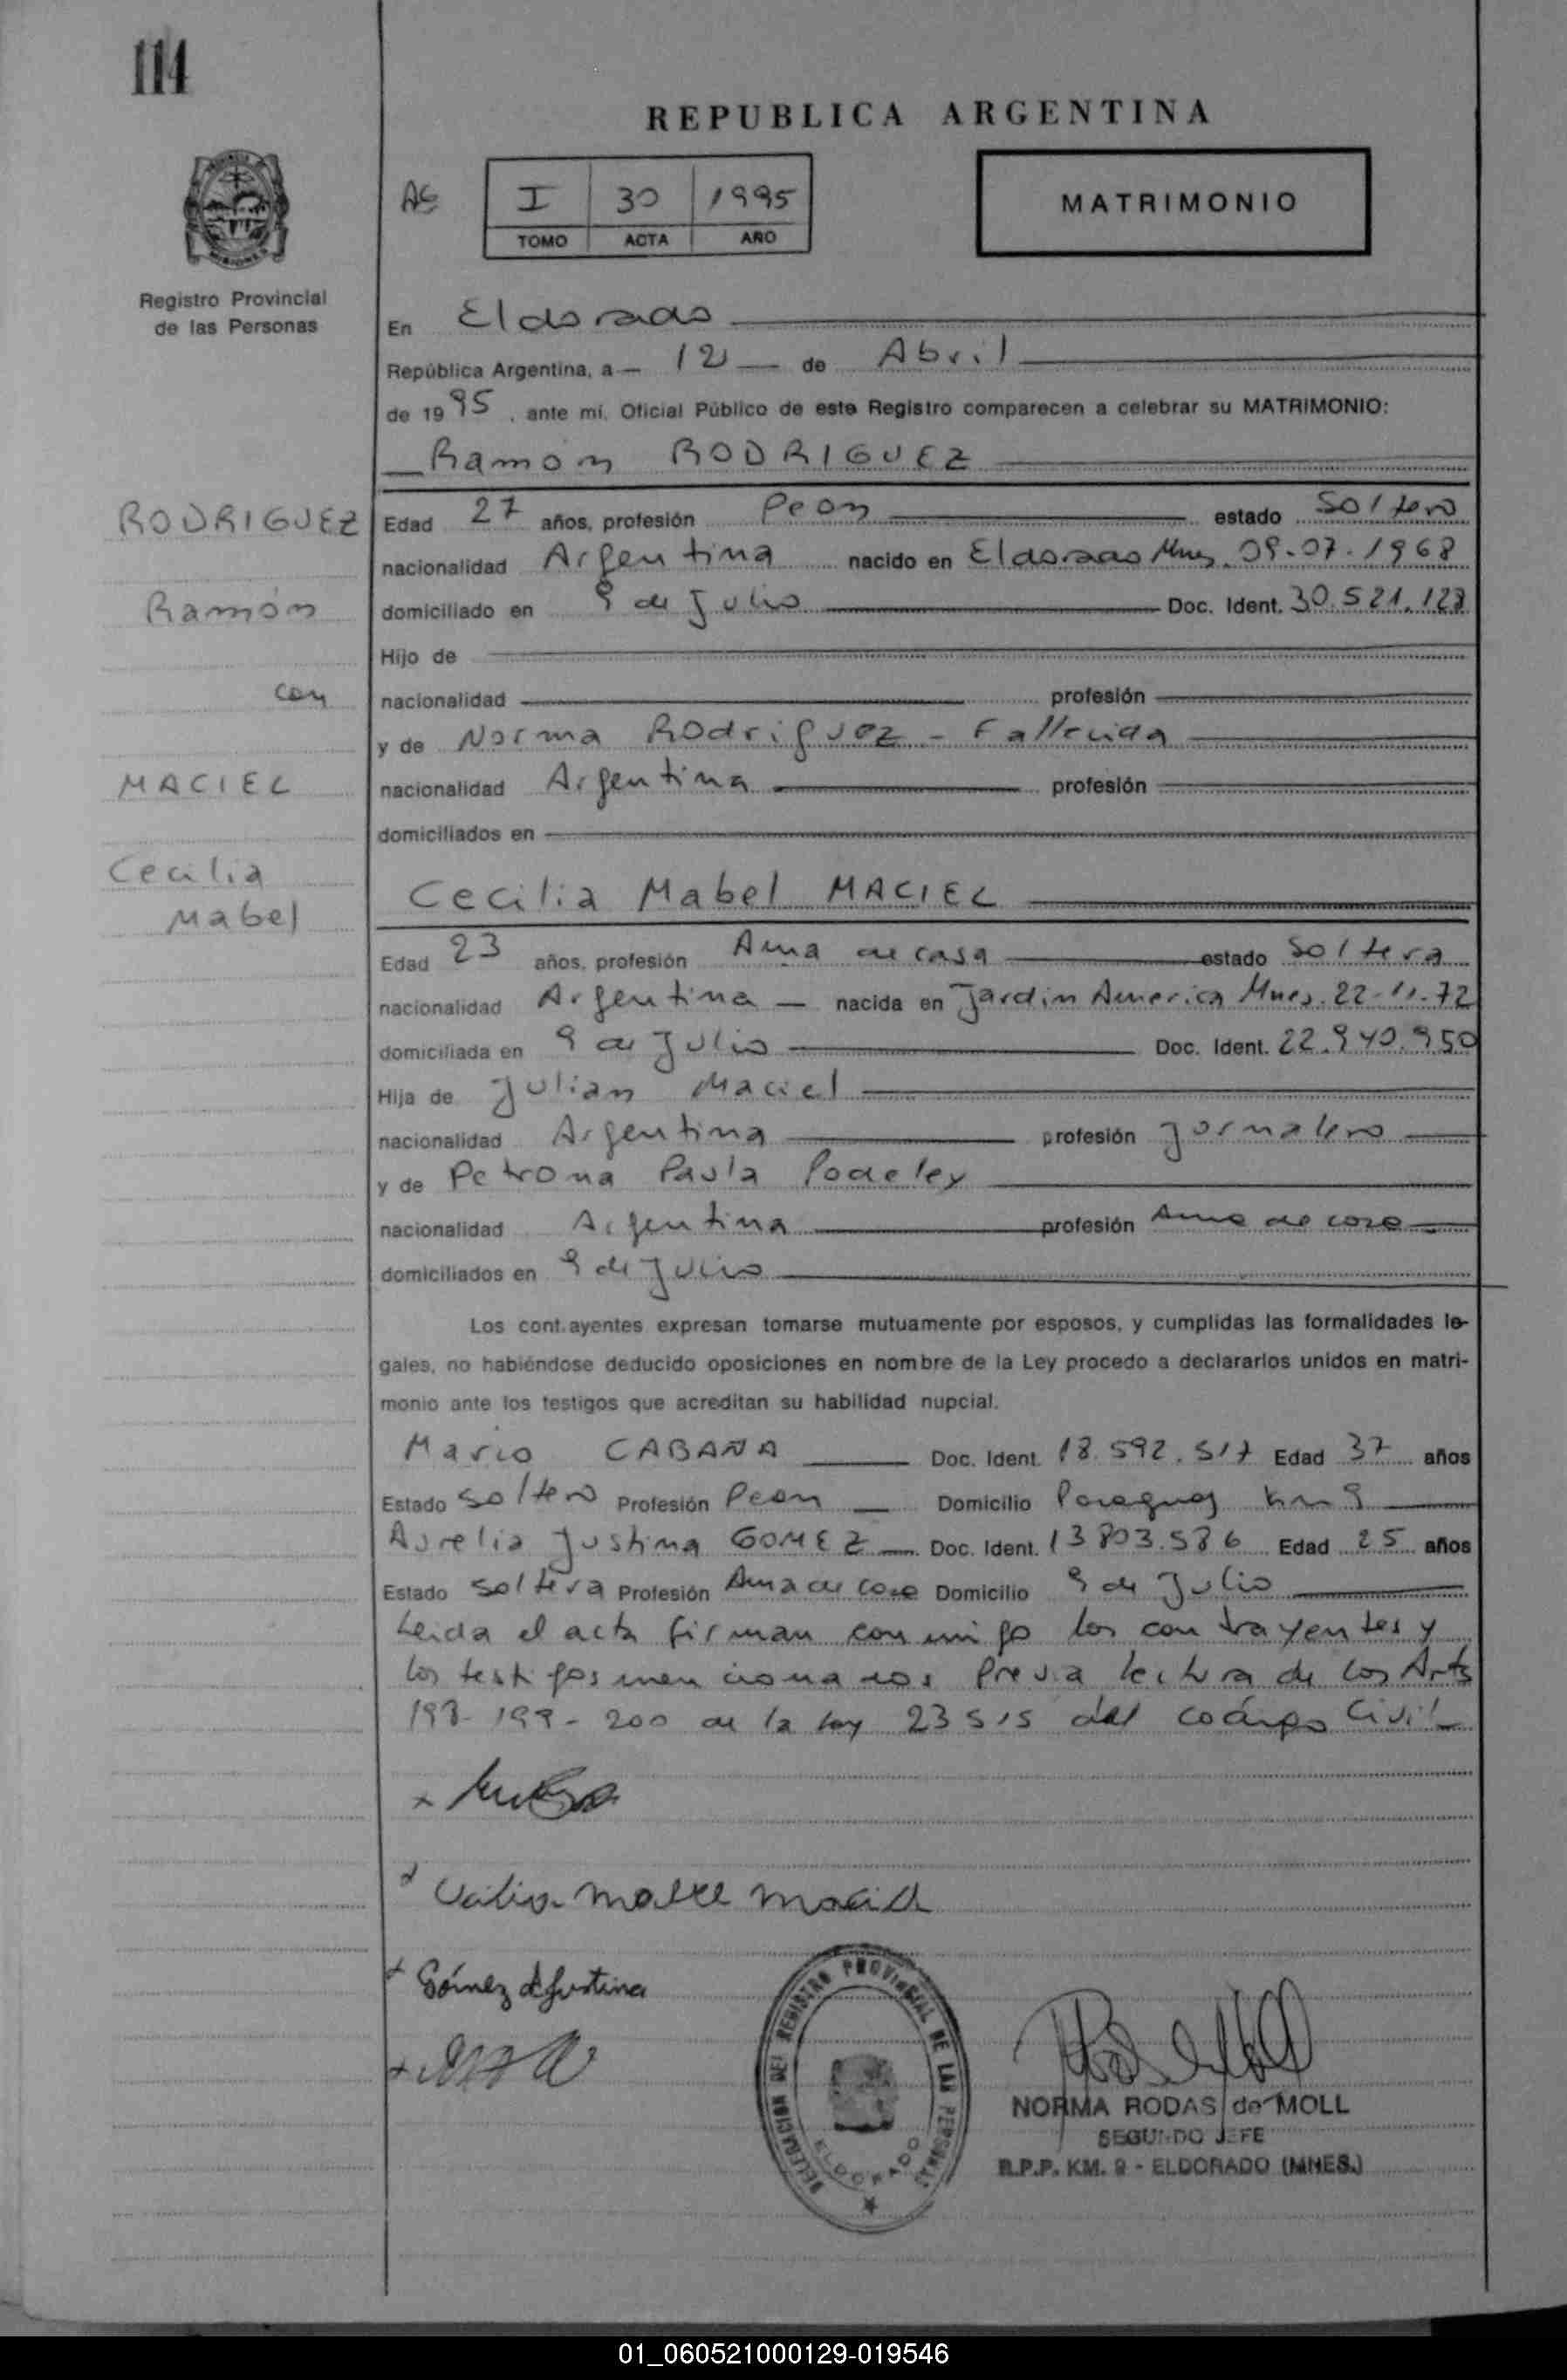 114
REPUBLICA ARGENTINA
AG
I 30 1995
TOMO ACTA AÑO
MATRIMONIO
Registro Provincial
de las Personas
En Eldorado
República Argentina, a 12 de Abril
de 1995, ante mí, Oficial Público de este Registro comparecen a celebrar su MATRIMONIO:
Ramón RODRIGUEZ
RODRIGUEZ
Edad 27 años, profesión Peon estado Soltero
nacionalidad Argentina nacido en Eldorado Mnes. 09-07-1968
Ramón
domiciliado en 9 de Julio Doc. Ident. 30.521.127
Hijo de
con
nacionalidad profesión
y de Norma Rodriguez - Fallecida
MACIEL
nacionalidad Argentina profesión
domiciliados en
Cecilia
Mabel
Cecilia Mabel MACIEL
Edad 23 años, profesión Ama de casa estado Soltera
nacionalidad Argentina nacida en Jardin America Mnes. 22-11-72
domiciliada en 9 de Julio Doc. Ident. 22.940.950
Hija de Julian Maciel
nacionalidad Argentina profesión Jornalero
y de Petrona Paula Podeley
nacionalidad Argentina profesión Ama de casa
domiciliados en 9 de Julio
Los cont.ayentes expresan tomarse mutuamente por esposos, y cumplidas las formalidades le-
gales, no habiéndose deducido oposiciones en nombre de la Ley procedo a declararlos unidos en matri-
monio ante los testigos que acreditan su habilidad nupcial.
Mario CABAÑA Doc. Ident. 18.592.517 Edad 37 años
Estado Soltero Profesión Peon Domicilio Paraguay km 9
Aurelia Justina GOMEZ Doc. Ident. 13803.586 Edad 25 años
Estado Soltera Profesión Ama de casa Domicilio 9 de Julio
Leida el acta firman conmigo los contrayentes y
los testigos mencionados Previa lectura de los Arts
198-199-200 de la ley 23515 del código Civil
Cecilia Mabel Maciel
Gómez A Justina
DELEGACION DEL REGISTRO PROVINCIAL DE LAS PERSONAS
ELDORADO
NORMA RODAS de MOLL
SEGUNDO JEFE
R.P.P. KM. 9 - ELDORADO (MNES.)
01_060521000129-019546